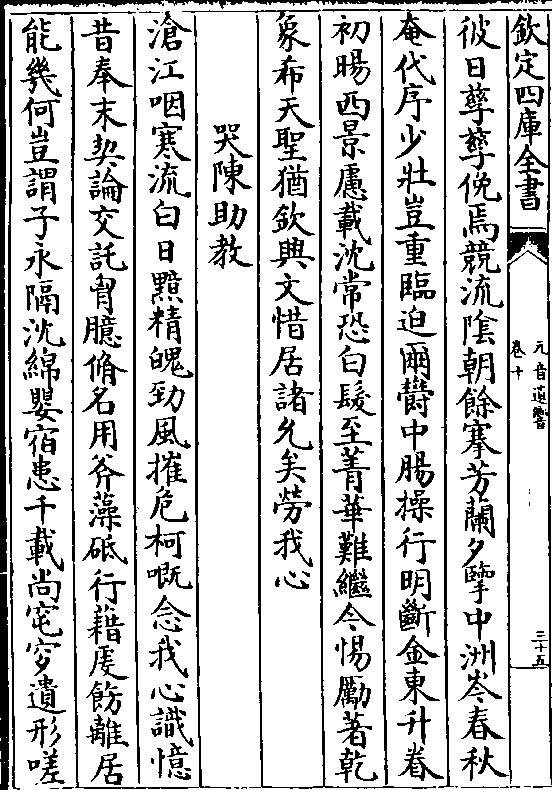 欽定四庫全書
元音遺響
卷十
三十五
彼日孳孳俛焉競流陰朝餘搴芳蘭夕擥中洲岑春秋
奄代序少壯豈重臨迫爾欝中腸操行明斷金東升眷
初暘西景慮載沈常恐白髮至菁華難繼今惕勵著乾
象希天聖猶欽興文惜居諸允矣勞我心
哭陳助教
滄江咽寒流白日黯精魄勁風摧危柯嘅念我心識憶
昔奉末契論交託胷臆脩名用斧藻砥行藉廋飭離居
能幾何豈謂子永隔沈綿嬰宿患千載尚窀穸遺形嗟